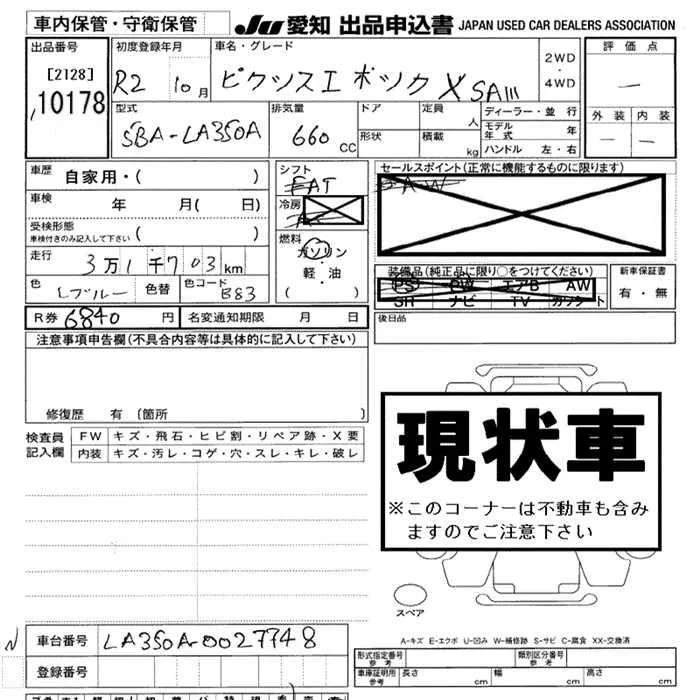 車内保管・守衛保管
JU 愛知 出品申込書 JAPAN USED CAR DEALERS ASSOCIATION
出品番号
[2128]
10178
初度登録年月
R2 10月
車名・グレード
ピクシスエポック X SAIII
2WD
・
4WD
評価点
―
外装 内装
― ―
型式
5BA-LA350A
排気量
660 CC
ドア
形状
定員 人
積載 kg
ディーラー・並行
モデル年式 年
ハンドル 左・右
車歴 自家用・( )
車検 年 月( 日)
受検形態
車検付きのみ記入して下さい ( )
走行 3万1千703km
色 Lブルー 色替 色コード B83
シフト
FAT
冷房
燃料
ガソリン
・
軽・油
( )
セールスポイント(正常に機能するものに限ります)
A・W
装備品(純正品に限り○をつけてください)
PS PW エアB AW
SR ナビ TV カワシート
新車保証書
有・無
後日品
R券 6840 円 名変通知期限 月 日
注意事項申告欄(不具合内容等は具体的に記入して下さい)
修復歴 有 〔箇所 〕
検査員記入欄
FW キズ・飛石・ヒビ割・リペア跡・X要
内装 キズ・汚レ・コゲ・穴・スレ・キレ・破レ
現状車
※このコーナーは不動車も含み
ますのでご注意下さい
スペア
A-キズ E-エクボ U-凹み W-補修跡 S-サビ C-腐食 XX-交換済
車台番号 LA350A-0027748
登録番号
型式指定番号 参考
類別区分番号 参考
車庫証明用 参考 長さ cm 幅 cm 高さ cm